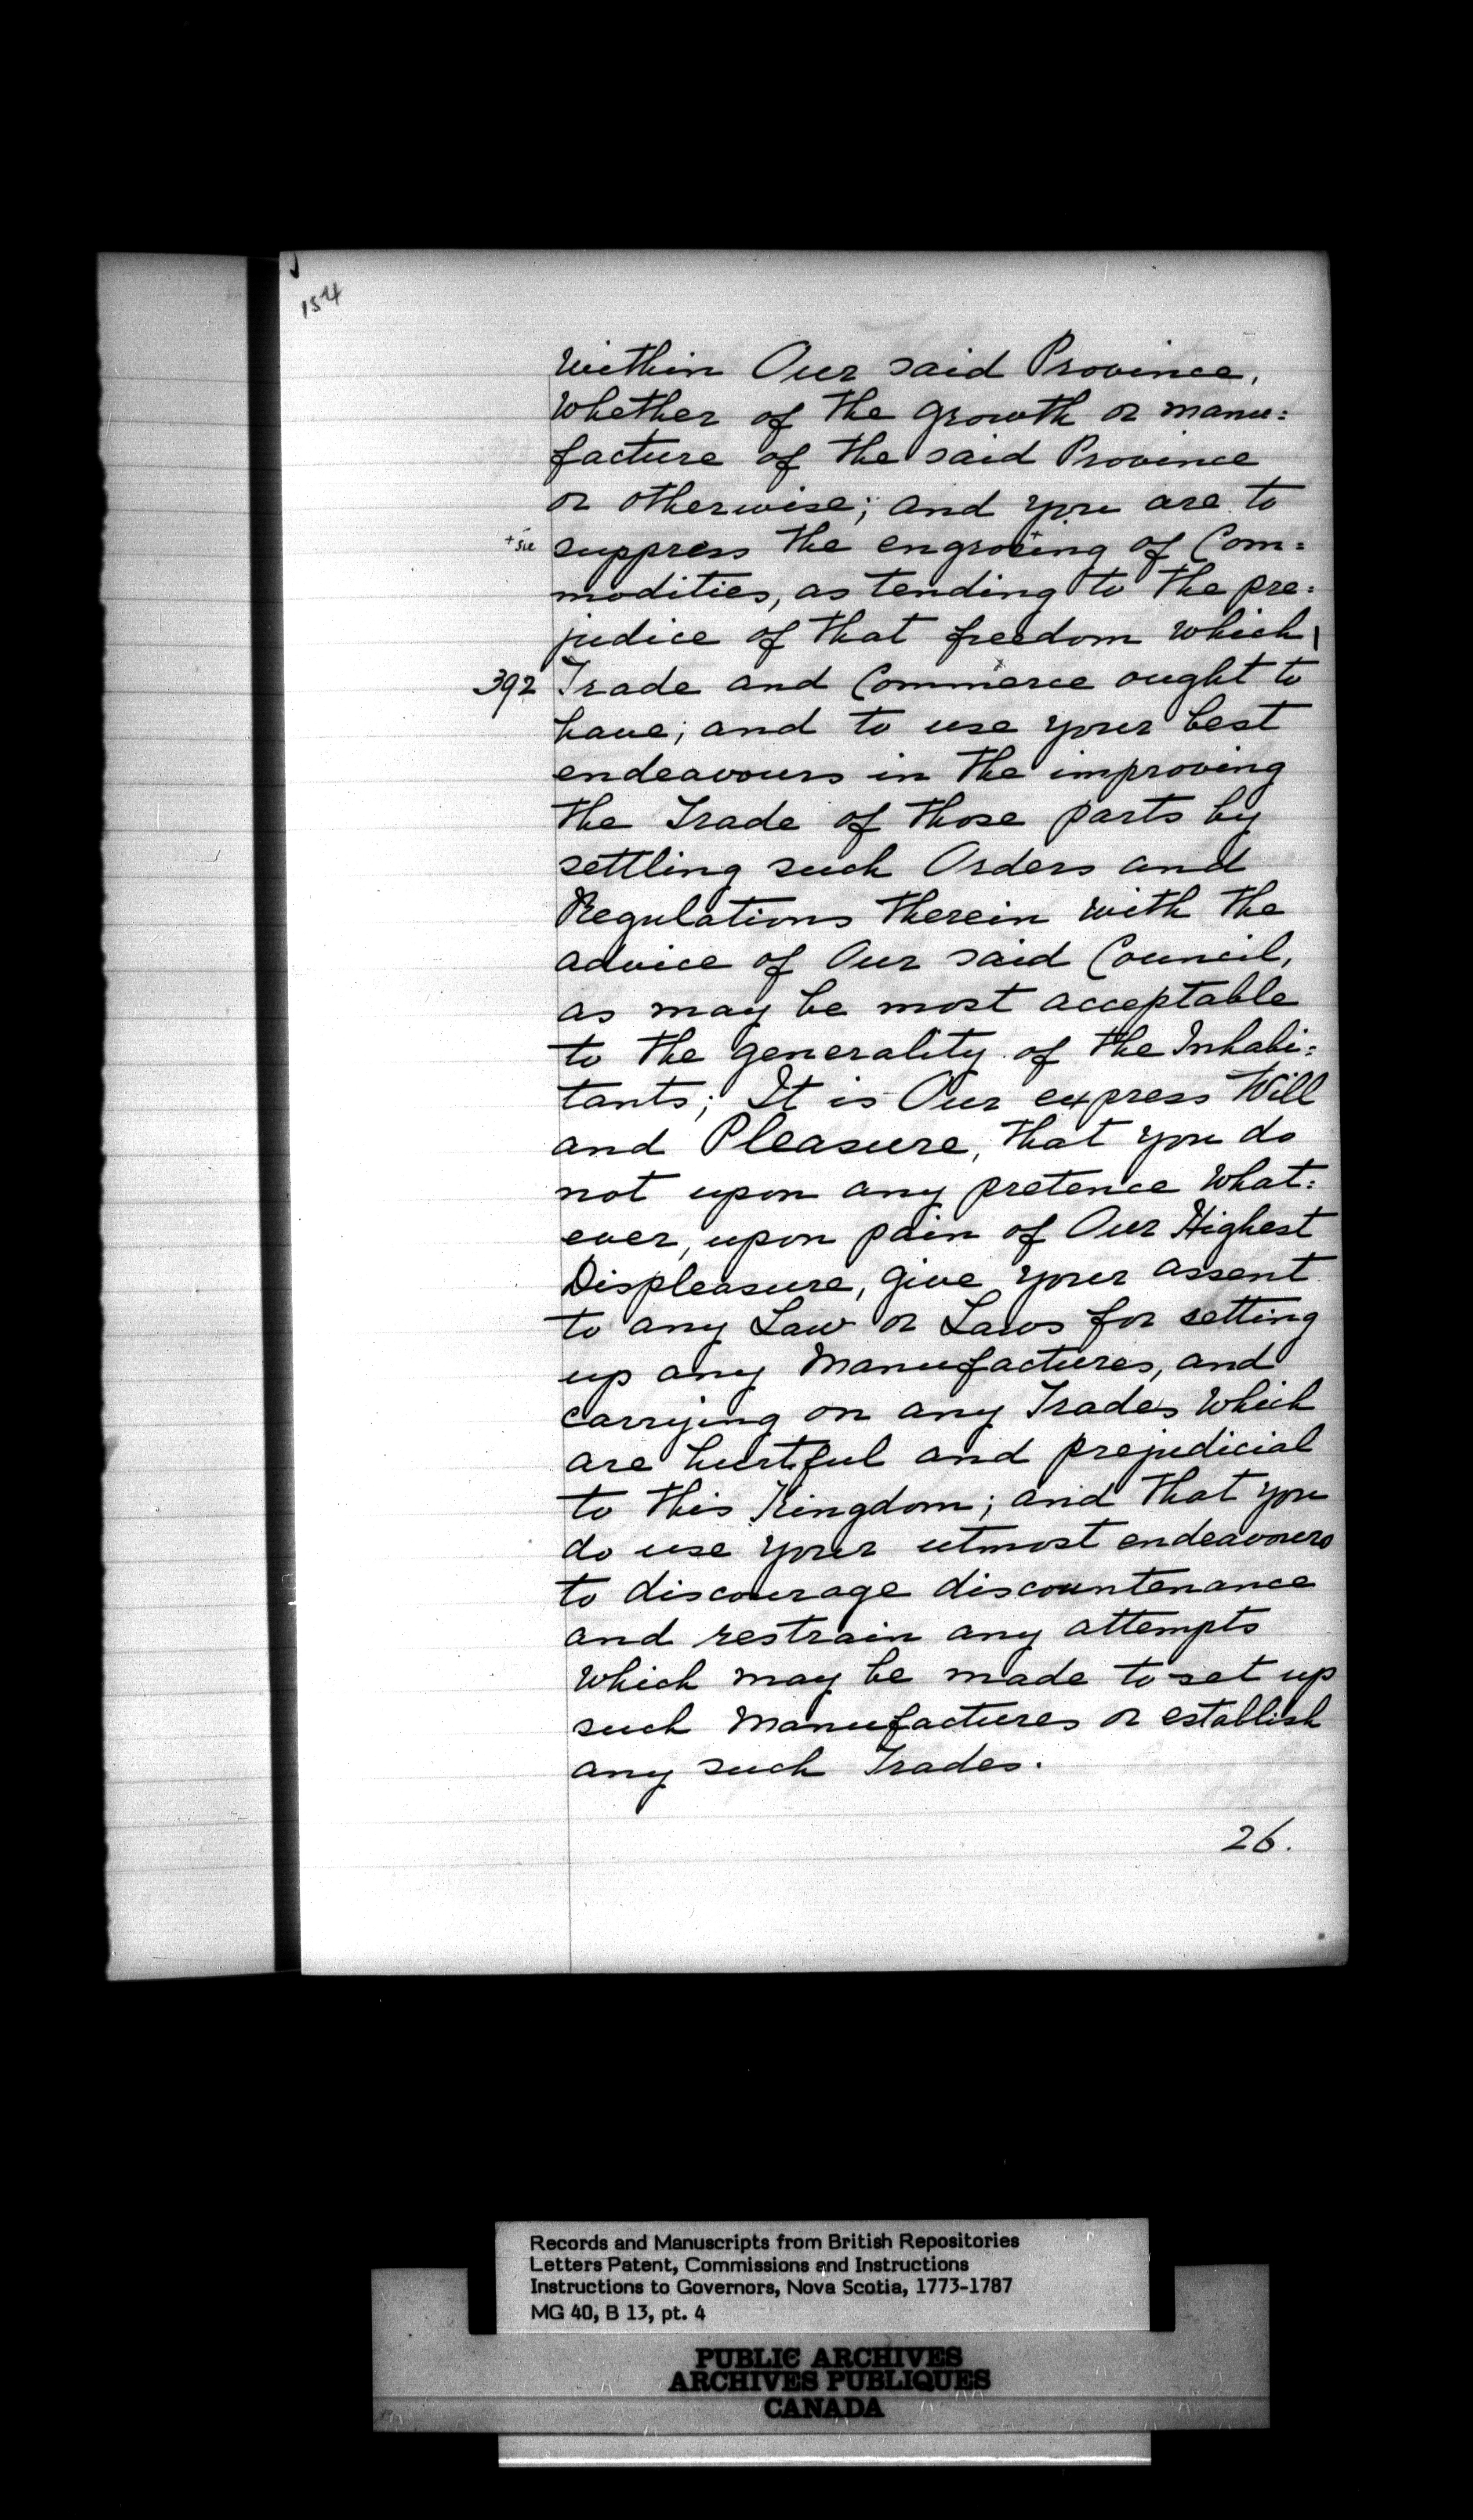 154
within Our said Province,
whether of the growth or manu=
facture of the said Province
or otherwise; and you are to
+sic suppress the engrosing+ of Com=
modities, as tending to the pre=
judice of that freedom which |
392 Trade and Commerce ought to
have; and to use your best
endeavours in the improving
the Trade of those parts by
settling such Orders and
Regulations therein with the
advice of Our said Council,
as may be most acceptable
to the generality of the Inhabi=
tants; It is Our express Will
and Pleasure, that you do
not upon any pretence what=
ever, upon pain of Our Highest
Displeasure, give your assent
to any Law or Laws for setting
up any Manufactures, and
carrying on any Trades which
are hurtful and prejudicial
to this Kingdom; and that you
do use your utmost endeavours
to discourage discountenance
and restrain any attempts
which may be made to set up
such Manufactures or establish
any such Trades.
26.
Records and Manuscripts from British Repositories
Letters Patent, Commissions and Instructions
Instructions to Governors, Nova Scotia, 1773-1787
MG 40, B 13, pt. 4
PUBLIC ARCHIVES
ARCHIVES PUBLIQUES
CANADA